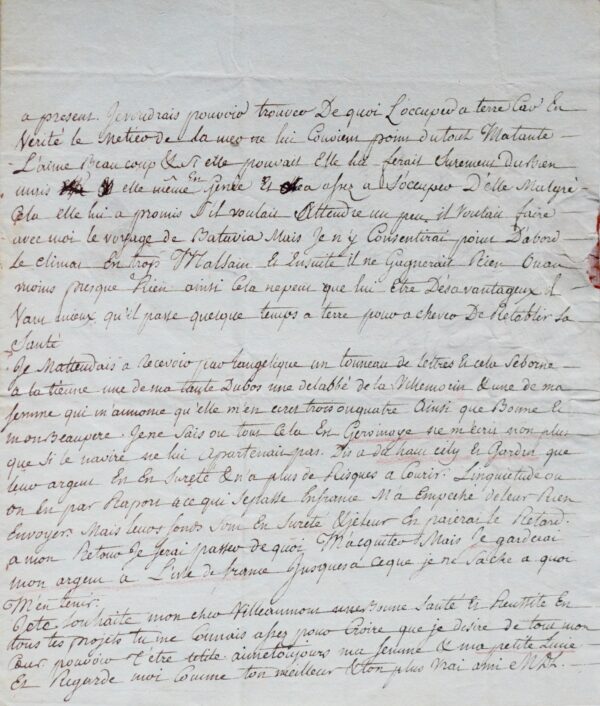 a present. Je voudrais pouvoir trouver De quoi L'occuper a terre Car En
Verité le Metier De La mer ne lui Convient point du tout Ma tante
L'aime Beaucoup & si elle pouvait Elle lui ferait Surement Du Bien
mais elle même En Genée Et a assez a S'occuper D'elle Malgré
Cela elle lui a promis S'il voulait Attendre un peu, il Voulait faire
avec moi le voyage de Batavia Mais Je n'y Consentirai point D'abord
le Climat En trop Malsain Et Ensuite il ne Gagnerait Rien Ou au
moins presque Rien ainsi Cela ne peut que lui Etre Désavantageux il
Vaut mieux qu'il passe quelque temps a terre pour achever De Retablir Sa
Santé
Je M'attendais a recevoir par langelique un tonneau de lettres Et cela Se borne
a la tienne une de ma tante Dubos une de labbé de la Villemorin & une de ma
femme qui m'annonce qu'elle m'en ecrit trois ou quatre Ainsi que Bonne &
mon Beaupere. Je ne Sais ou tout Cela En ne m'ecrit non plus
que Si le navire ne lui apartenait pas. Dis a & Gardin que
leur argent En En Sureté & n'a plus de Risques a Courir. L'inquietude ou
on En par Raport a ce qui Se passe En france M'a Empeché de leur Rien
Envoyer Mais leurs fonds Son En Sureté & je leur En paierai le Retard.
a mon Retour Je Serai passer de quoi M'acquiter Mais Je garderai
mon argent a L'isle de france Jusques a ce que je ne Sache a quoi
M'en tenir.
Je te Souhaite mon cher Villeaumont une Bonne Santé Et Reussite En
tous tes projets tu me Connais assez pour Croire que je desire de tout mon
Cœur pouvoir t'être utile aime toujours ma femme & ma petite Lucie
Et Regarde moi Comme ton meilleur & ton plus Vrai ami